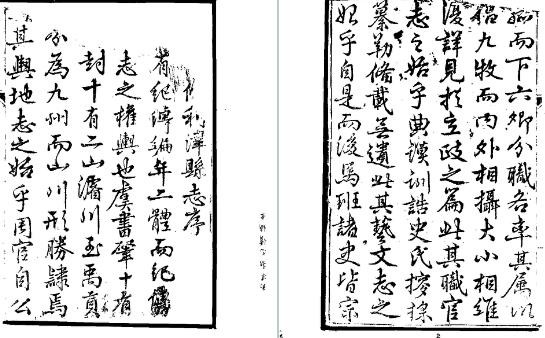 利津縣志序
有紀傳編年二體而紀
志之權輿也虞書肇十有
封十有二山濬川至禹貢
分為九州而山川形勝隸焉
其輿地志之始乎周官自公
孤而下六卿分職各率其属以
倡九牧而內外相攝大小相維
復詳見於立政之篇此其職官
志之始乎典謨訓誥史氏採
纂勒備載無遺此其藝文志之
始乎自是而後馬班諸史皆宗